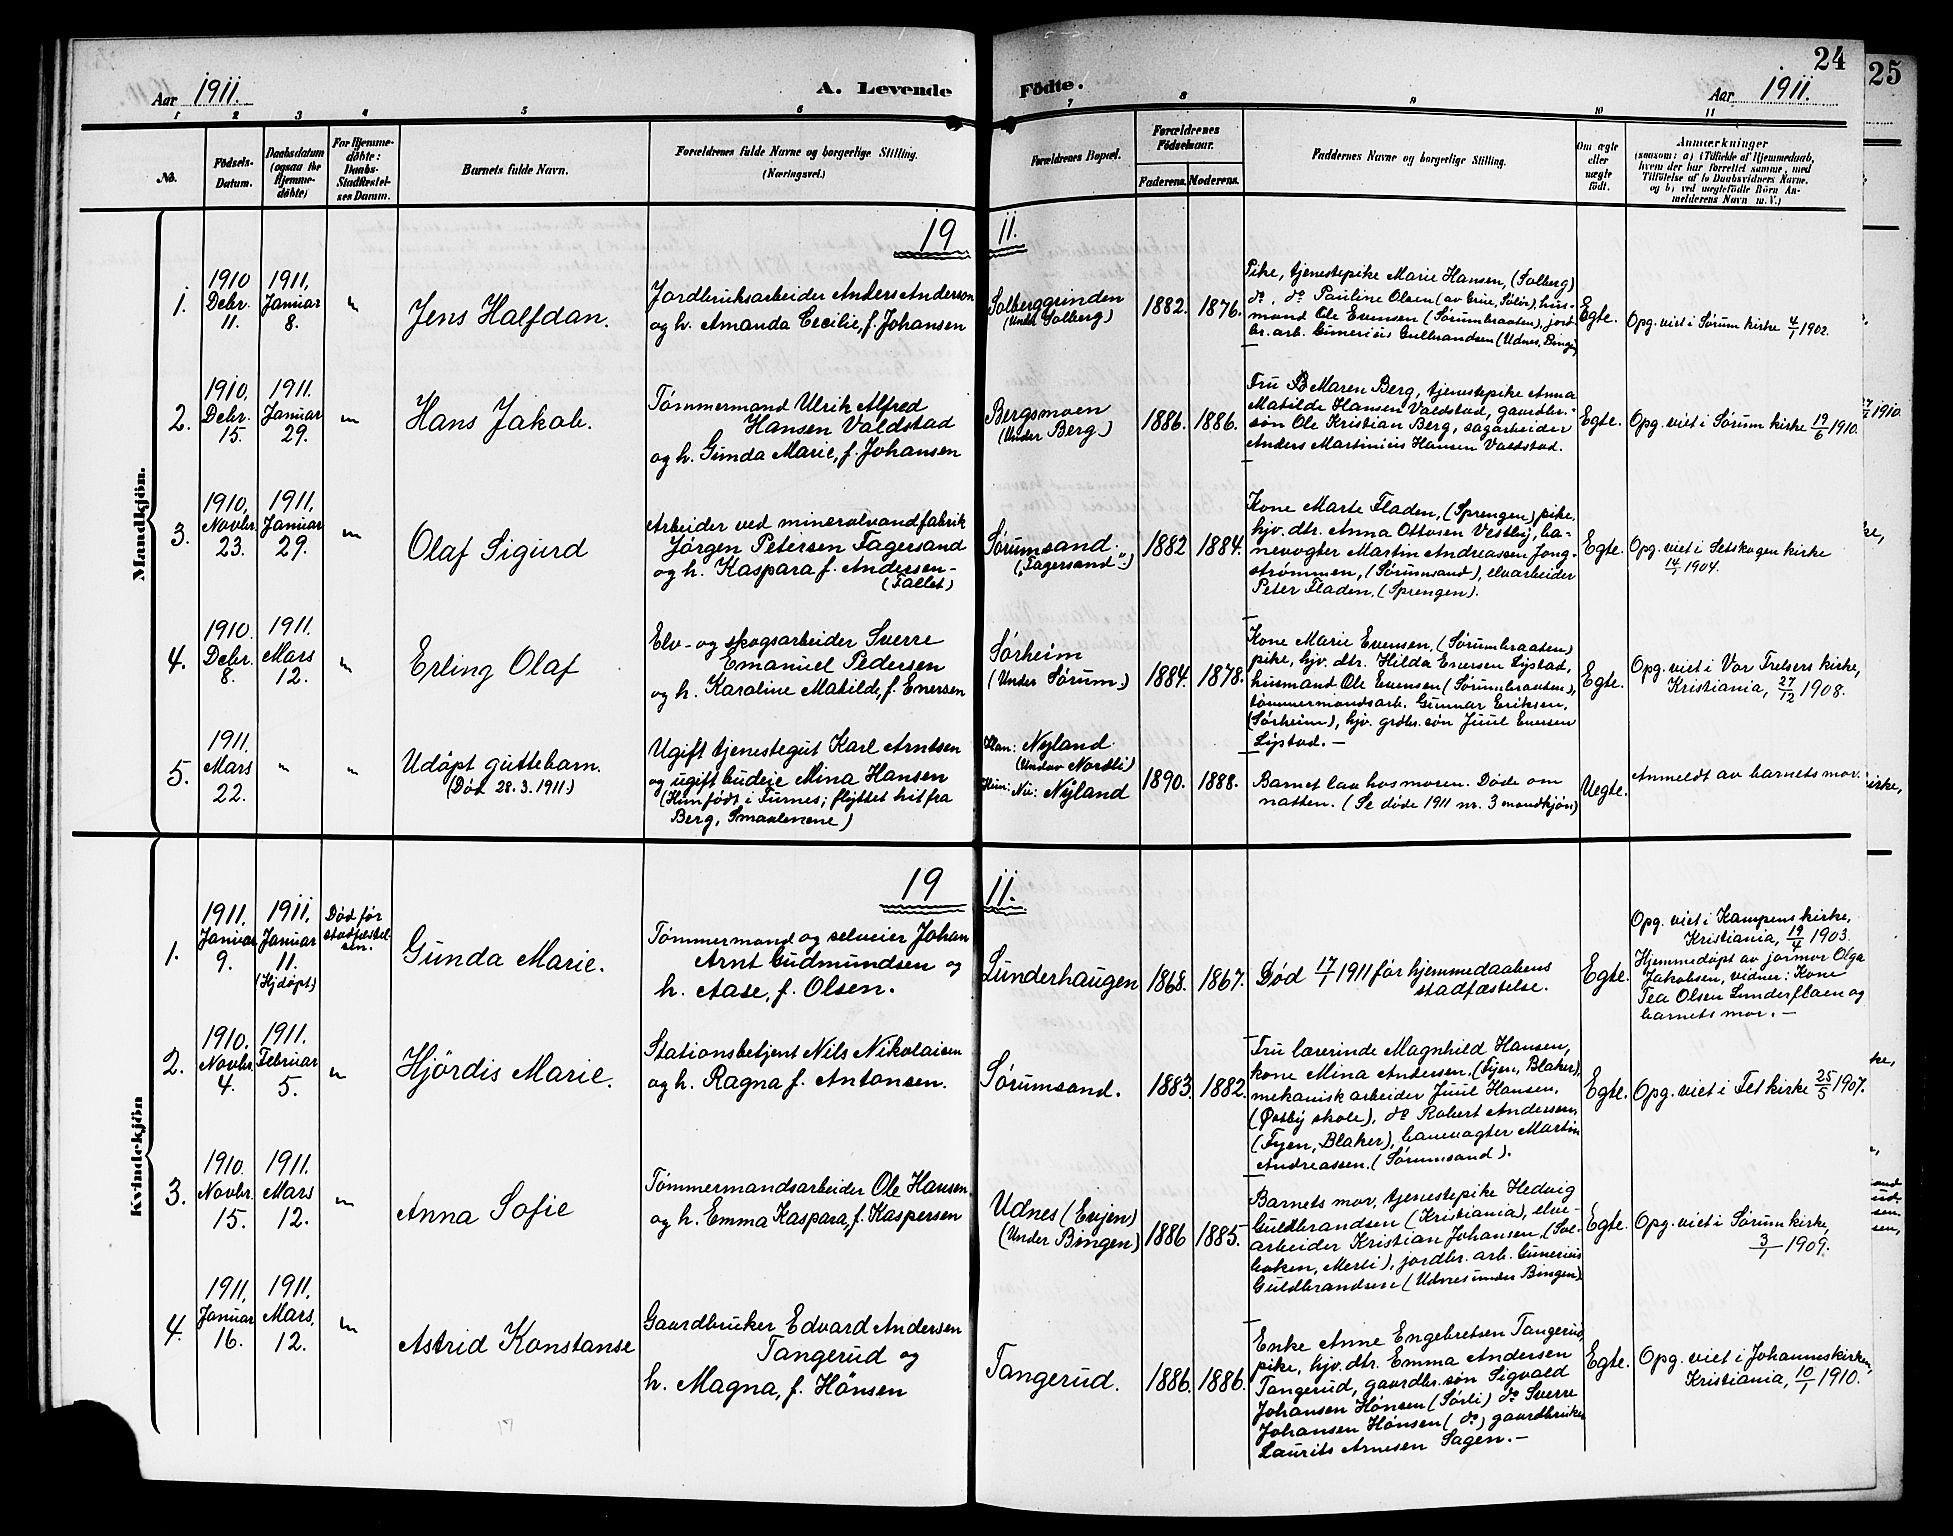 24
25
Aar 1911.
A. Levende
Födte.
Aar 1911.
1 2 3 4 5 6 7 8 9 10 11
No.
Födsels-
Datum.
Daabsdatum
(ogsaa for
Hjemme-
døbte)
For Hjemme-
døbte:
Daabs-
Stadfæstel-
ses Datum.
Barnets fulde Navn.
Forældrenes fulde Navne og borgerlige Stilling.
(Næringsvei.)
Forældrenes Bopæl.
Forældrenes
Födselsaar.
Faderens.
Moderens.
Faddernes Navne og borgerlige Stilling.
Om ægte
eller
uægte
født.
Anmærkninger
(saasom: a) i Tilfælde af Hjemmedaab,
hvem der har forrettet samme, med
Tilføielse af to Daabsvidners Navne,
og b) ved uægtefödte Börn An-
melderens Navn m. V.)
Mandkjön.
19 11.
1.
1910
Debr.
11.
1911,
Januar
8.
"
Jens Halfdan.
Jordbruksarbeider Anders Anderson
og h. Amanda Cecilie, f. Johansen
Solberggrinden
(Under Solberg)
1882.
1876.
Pike, tjenestepike Marie Hansen, (Solberg)
do, do Pauline Olsen (av Grue, Solör), hus-
mand Ole Evensen (Sørumbraaten), jord-
br. arb. Gunerius Gulbrandsen (Udnes, Bingen)
Egte.
Opg. viet i Sørum kirke 4/1 1902.
2.
1910.
Debr.
15.
1911.
Januar
29.
"
Hans Jakob.
Tømmermand Ulrik Alfred
Hansen Valdstad
og h. Gunda Marie, f. Johansen
Bergsmoen
(Under Berg.)
1886.
1886.
Fru Maren Berg, tjenestepike Anna
Matilde Hansen Valdstad, gaardbr.-
søn Ole Kristian Berg, sagarbeider
Anders Martinius Hansen Valdstad.
Egte.
Opg. viet i Sørum kirke 19/6 1910.
3.
1910,
Novbr.
23.
1911.
Januar
29.
"
Olaf Sigurd
Arbeider ved mineralvandfabrik
Jørgen Petersen Fagersand
og h. Kaspara f. Andersen-
(Fallet)
Sørumsand.
("Fagersand".)
1882
1884.
Kone Marte Fladen, (Sprengen) pike,
hjv. dtr. Anna Ottosen Vestby, ba-
nevogter Martin Andreassen Jong-
strømmen, (Sørumsand), elvarbeider
Peter Fladen, (Sprengen).
Egte.
Opg. viet i Setskogen kirke
14/1 1904.
4.
1910.
Debr.
8.
1911.
Mars
12.
"
Erling Olaf
Elv- og skogsarbeider Sverre
Emanuel Pedersen
og h. Karoline Matilde, f. Enersen
Sørheim
(Under Sørum.)
1884.
1878.
Kone Marie Evensen, (Sørumbraaten)
pike, hjv. dtr. Hilda Enersen Lystad,
husmand Ole Evensen (Sørumbraaten),
tømmermandsarb. Gunnar Eriksen,
(Sørheim), hjv. grdbr. søn Juul Enersen
Lystad. —
Egte.
Opg. viet i Vor Frelsers kirke,
Kristiania, 27/12 1908.
5.
1911.
Mars
22.
"
"
Udöpt guttebarn.
(Död 28.3.1911.)
Ugift tjenestegut Karl Arntsen
og ugift budeie Mina Hansen
(Hun födt i Furnes; flyttet hit fra
Berg, Smaalenene)
Han: Nyland
(Under Nordli)
Hun: Nyland
1890.
1888.
Barnet laa hos moren. Døde om
natten. (Se döde 1911 nr. 3 mandkjön)
Uegte.
Anmeldt av barnets mor.
Kvindekjön
19 11.
1.
1911.
Januar
9.
1911.
Januar
11.
(Hjdöpt)
Død før
stadfæstel-
sen.
Gunda Marie.
Tømmermand og selveier Johan
Arnt Gudmundsen og
h. Aase, f. Olsen.
Lunderhaugen
1868.
1867.
Død 17/1 1911 før hjemmedaabens
stadfæstelse.
Egte.
Opg. viet i Kampens kirke,
Kristiania, 19/4 1903.
Hjemmedøpt av jormor Olga
Jakobsen, vidner: Kone
Tea Olsen Lunderflaen og
barnets mor. —
2.
1910.
Novbr.
4.
1911.
Februar
5.
"
Hjördis Marie.
Stationsbetjent Nils Nikolaisen
og h. Ragna f. Antonsen.
Sørumsand.
1883.
1882.
Fru lærerinde Magnhild Hansen,
kone Mina Andersen, (Fjen, Blaker),
mekanisk arbeider Juul Hansen,
(Østby skole), do Robert Andersen,
(Fyen, Blaker), banevogter Martin
Andreassen. (Sørumsand).
Egte.
Opg. viet i Fet kirke 25/5 1907.
3.
1910.
Novbr.
15.
1911.
Mars
12.
"
Anna Sofie
Tømmermandsarbeider Ole Hansen
og h. Emma Kaspara, f. Kaspersen
Udnes (Evjen)
(Under Bingen.)
1886
1885.
Barnets mor, tjenestepike Hedvig
Guldbrandsen (Kristiania), elve-
arbeider Kristian Johansen, (Sol-
bakken, Merli), jordbr. arb. Gunerius
Guldbrandsen (Udnes under Bingen)
Egte.
Opg. viet i Sørum kirke,
3/1 1909.
4.
1911.
Januar
16.
1911.
Mars.
12.
"
Astrid Konstanse
Gaardbruker Edvard Andersen
Tangerud og
h. Magna, f. Hönsen
Tangerud.
1886.
1886.
Enke Anne Engebretsen Tangerud,
pike, hjv. dtr. Emma Andersen
Tangerud, gaardbr. søn Sigvald
Johansen Hønsen (Sørli) do Sverre
Johansen Hønsen (do) gaardbruker
Laurits Arnesen Sagen. —
Egte.
Opg. viet i Johanneskirken,
Kristiania, 10/1 1910.